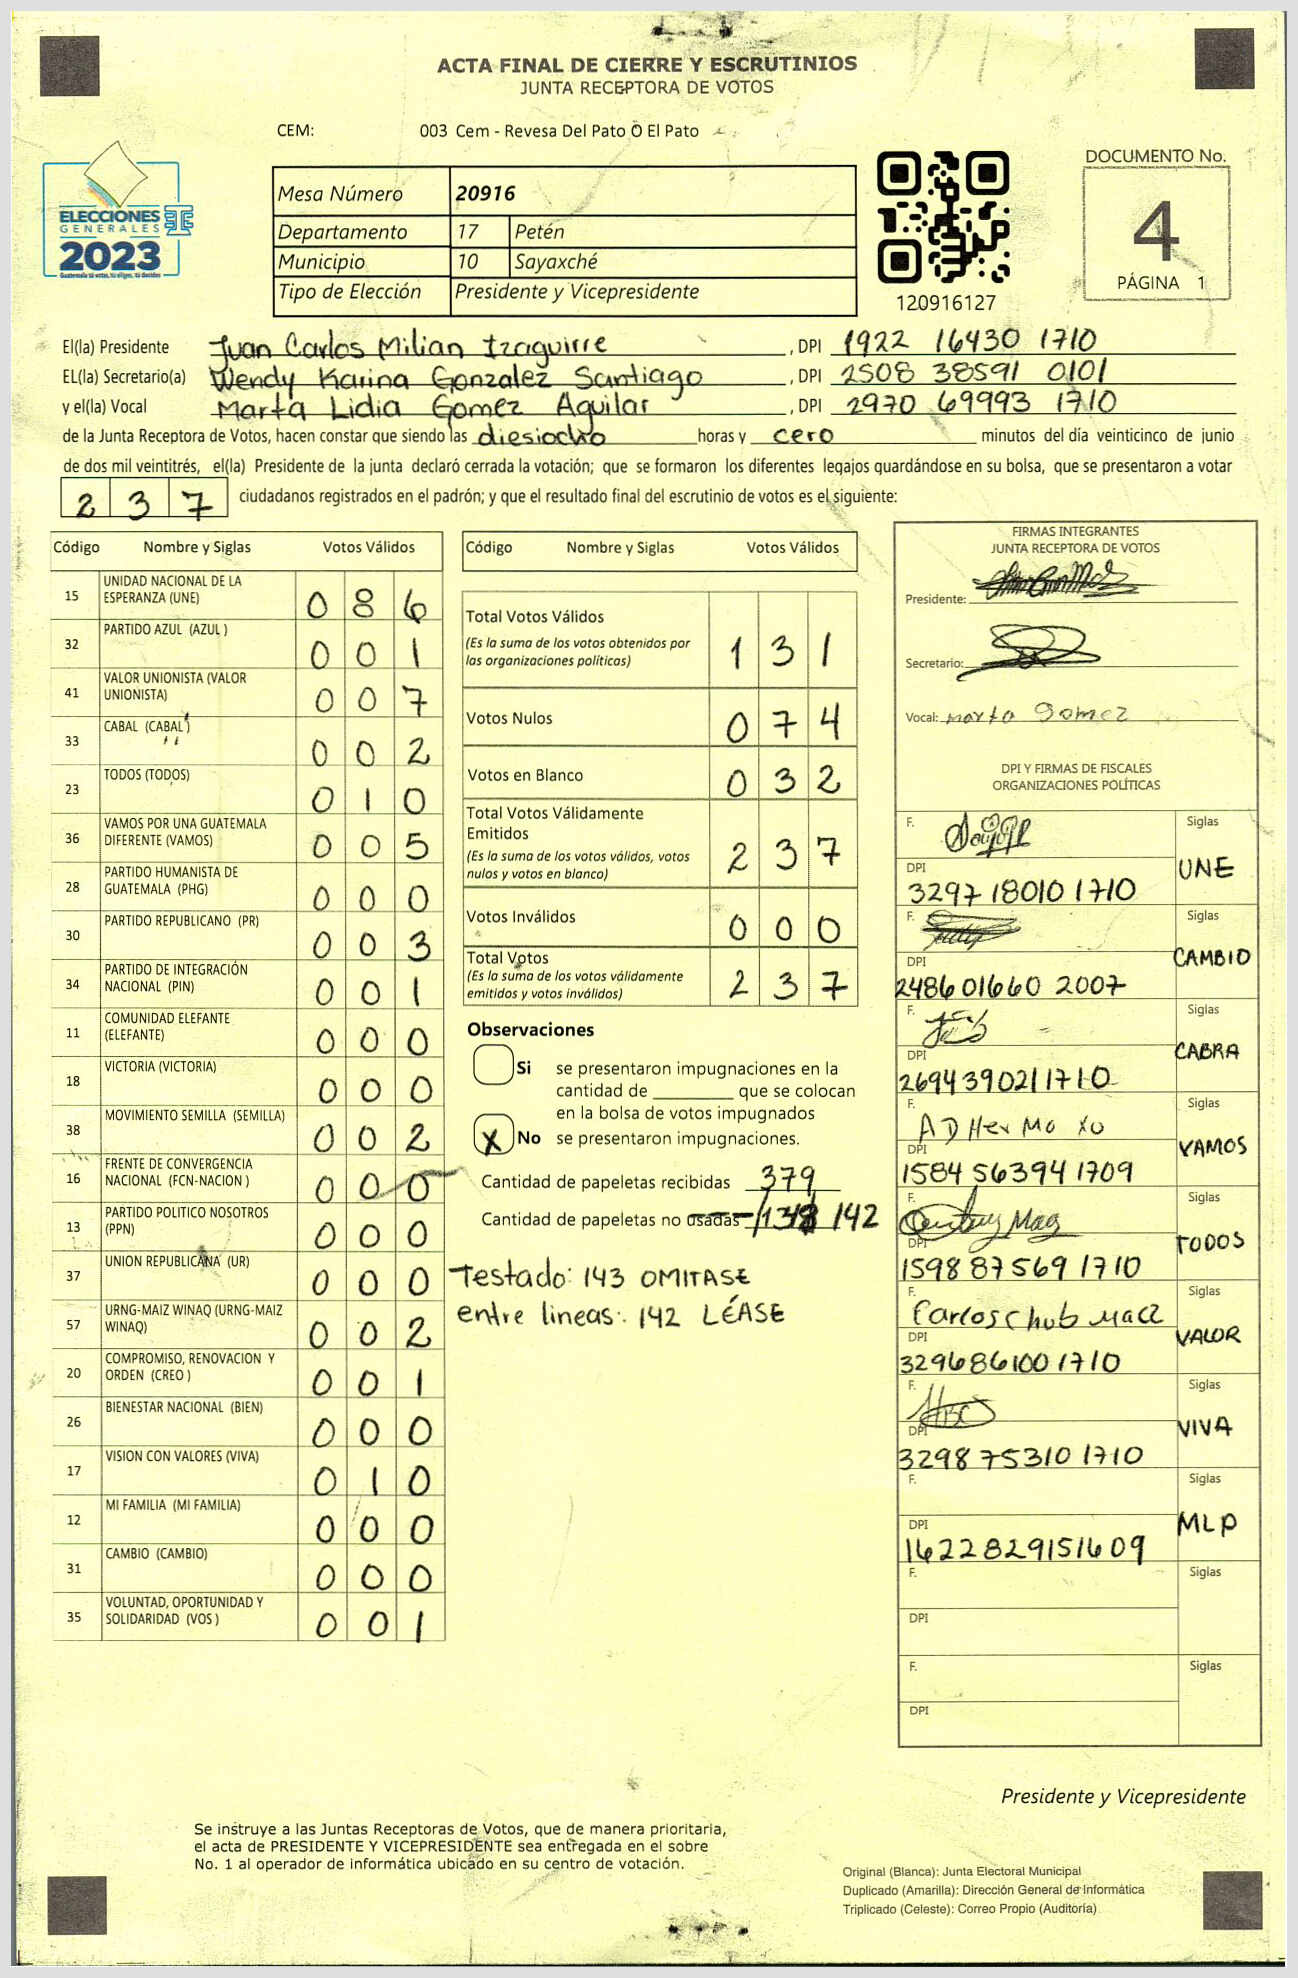 ACTA FINAL DE CIERRE Y ESCRUTINIOS
JUNTA RECEPTORA DE VOTOS
CEM: 003 Cem - Revesa Del Pato O El Pato
ELECCIONES
GENERALES
2023
Mesa Número 20916
Departamento 17 Petén
Municipio 10 Sayaxché
Tipo de Elección Presidente y Vicepresidente
120916127
DOCUMENTO No.
4
PÁGINA 1
El(la) Presidente Juan Carlos Milian Izaguirre , DPI 1922 16430 1710
EL(la) Secretario(a) Wendy Karina Gonzalez Santiago , DPI 2508 38591 0101
y el(la) Vocal Marta Lidia Gomez Aguilar , DPI 2970 69993 1710
de la Junta Receptora de Votos, hacen constar que siendo las diesiocho horas y cero minutos del día veinticinco de junio
de dos mil veintitrés, el(la) Presidente de la junta declaró cerrada la votación; que se formaron los diferentes legajos quardándose en su bolsa, que se presentaron a votar
237 ciudadanos registrados en el padrón; y que el resultado final del escrutinio de votos es el siguiente:
Código Nombre y Siglas Votos Válidos
15 UNIDAD NACIONAL DE LA ESPERANZA (UNE) 0 8 6
32 PARTIDO AZUL (AZUL ) 0 0 1
41 VALOR UNIONISTA (VALOR UNIONISTA) 0 0 7
33 CABAL (CABAL ) 0 0 2
23 TODOS (TODOS) 0 1 0
36 VAMOS POR UNA GUATEMALA DIFERENTE (VAMOS) 0 0 5
28 PARTIDO HUMANISTA DE GUATEMALA (PHG) 0 0 0
30 PARTIDO REPUBLICANO (PR) 0 0 3
34 PARTIDO DE INTEGRACIÓN NACIONAL (PIN) 0 0 1
11 COMUNIDAD ELEFANTE (ELEFANTE) 0 0 0
18 VICTORIA (VICTORIA) 0 0 0
38 MOVIMIENTO SEMILLA (SEMILLA) 0 0 2
16 FRENTE DE CONVERGENCIA NACIONAL (FCN-NACION ) 0 0 0
13 PARTIDO POLITICO NOSOTROS (PPN) 0 0 0
37 UNION REPUBLICANA (UR) 0 0 0
57 URNG-MAIZ WINAQ (URNG-MAIZ WINAQ) 0 0 2
20 COMPROMISO, RENOVACION Y ORDEN (CREO ) 0 0 1
26 BIENESTAR NACIONAL (BIEN) 0 0 0
17 VISION CON VALORES (VIVA) 0 1 0
12 MI FAMILIA (MI FAMILIA) 0 0 0
31 CAMBIO (CAMBIO) 0 0 0
35 VOLUNTAD, OPORTUNIDAD Y SOLIDARIDAD (VOS ) 0 0 1
Código Nombre y Siglas Votos Válidos
Total Votos Válidos 1 3 1
(Es la suma de los votos obtenidos por
las organizaciones políticas)
Votos Nulos 0 7 4
Votos en Blanco 0 3 2
Total Votos Válidamente
Emitidos 2 3 7
(Es la suma de los votos válidos, votos
nulos y votos en blanco)
Votos Inválidos 0 0 0
Total Votos 2 3 7
(Es la suma de los votos válidamente
emitidos y votos inválidos)
Observaciones
Si se presentaron impugnaciones en la
cantidad de ________ que se colocan
en la bolsa de votos impugnados
X No se presentaron impugnaciones.
Cantidad de papeletas recibidas 379
Cantidad de papeletas no usadas 142
Testado: 143 OMITASE
entre lineas: 142 LÉASE
FIRMAS INTEGRANTES
JUNTA RECEPTORA DE VOTOS
Presidente:
Secretario:
Vocal: marta Gomez
DPI Y FIRMAS DE FISCALES
ORGANIZACIONES POLÍTICAS
F. Siglas
DPI UNE
3297 18010 1710
F. Siglas
DPI CAMBIO
2486 01660 2007
F. Siglas
DPI CABRA
2694390211710
F. Siglas
DPI VAMOS
1584 56394 1709
F. Siglas
DPI TODOS
1598 87569 1710
F. Carlos Chub Siglas
DPI VALOR
3296861001710
F. Siglas
DPI VIVA
3298 75310 1710
F. Siglas
DPI MLP
1622829151609
F. Siglas
DPI
F. Siglas
DPI
Presidente y Vicepresidente
Se instruye a las Juntas Receptoras de Votos, que de manera prioritaria,
el acta de PRESIDENTE Y VICEPRESIDENTE sea entregada en el sobre
No. 1 al operador de informática ubicado en su centro de votación.
Original (Blanca): Junta Electoral Municipal
Duplicado (Amarilla): Dirección General de Informática
Triplicado (Celeste): Correo Propio (Auditoría)